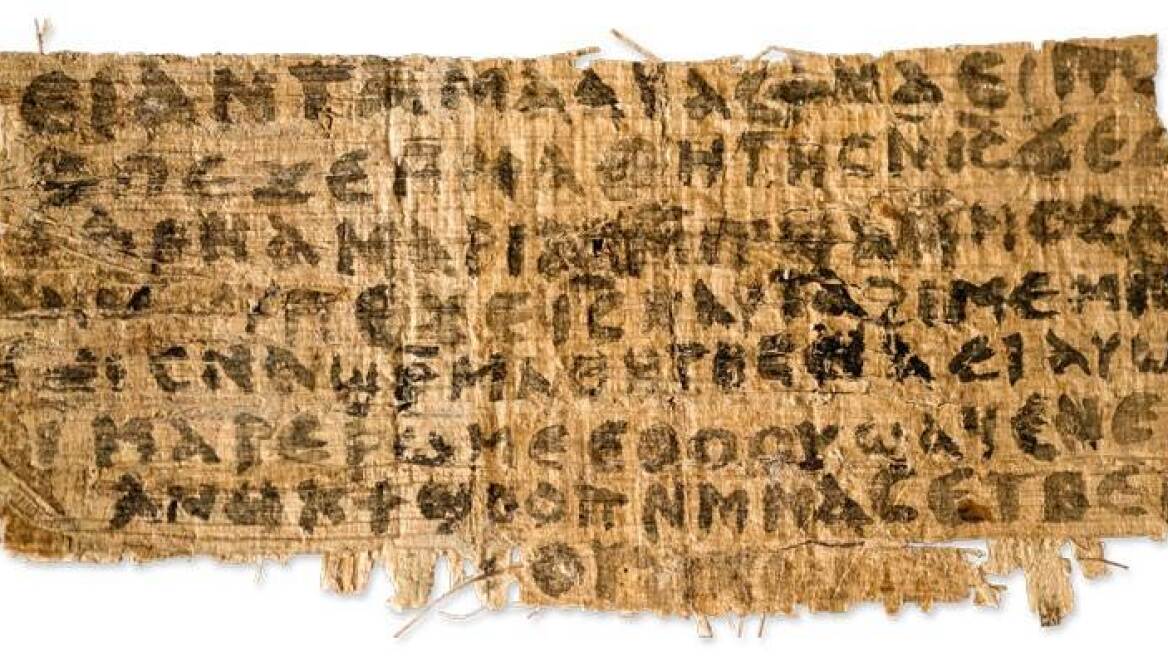 ⲉⲓⲁⲛⲧⲁⲙⲁⲁⲩⲁⲥϯⲛⲁⲉⲓⲡ
ⲥⲡⲉϫⲉⲙⲙⲁⲑⲏⲧⲏⲥⲛⲓ̅ⲥ̅ϫⲉⲥ
ⲁⲣⲛⲁⲙⲁⲣⲓⲁⲙⲙⲡϣⲁⲙⲙⲟⲥⲁ
ⲡⲉϫⲉⲓ̅ⲥ̅ⲛⲁⲩⲧⲁϩⲓⲙⲉⲙⲛ
ⲥⲛⲁϣⲣⲙⲁⲑⲏⲧⲏⲥⲛⲁⲉⲓⲁⲩⲱ
ⲓⲙⲁⲣⲉⲣⲱⲙⲉⲉⲑⲟⲟⲩϣⲁϥⲉⲛⲉ
ⲁⲛⲟⲕϯϣⲟⲟⲡⲛⲙⲙⲁⲥⲉⲧⲃⲉ